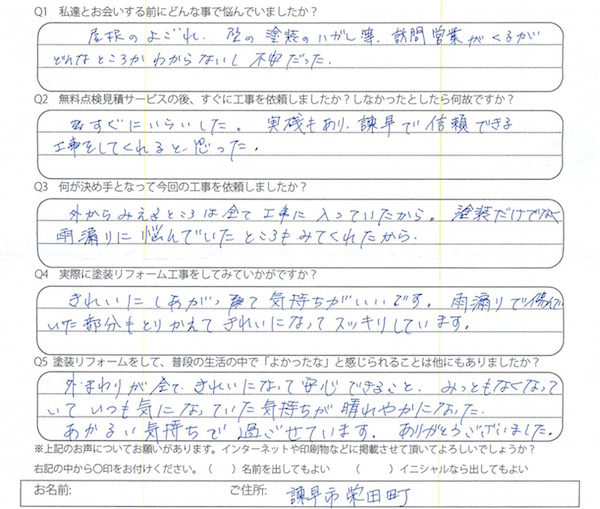 Q1 私達とお会いする前にどんな事で悩んでいましたか？
屋根のよごれ、壁の塗装のはがし等、訪問営業がくるが
どんなところかわからないし不安だった。
Q2 無料点検見積サービスの後、すぐに工事を依頼しましたか？しなかったとしたら何故ですか？
すぐにいらいした。実績もあり、諫早で信頼できる
工事をしてくれると思った。
Q3 何が決め手となって今回の工事を依頼しましたか？
外からみえるところは全て工事に入っていたから。塗装だけでなく
雨漏りに悩んでいたところもみてくれたから。
Q4 実際に塗装リフォーム工事をしてみていかがですか？
きれいにしあがって気持ちがいいです。雨漏りで傷んで
いた部分もとりかえてきれいになってスッキリしています。
Q5 塗装リフォームをして、普段の生活の中で「よかったな」と感じられることは他にもありましたか？
外まわりが全てきれいになって安心できること、みっともなくなって
いていつも気になっていた気持ちが晴れやかになった。
あかるい気持ちで過ごせています。ありがとうございました。
※上記のお声についてお願いがあります。インターネットや印刷物などに掲載させて頂いてよろしいでしょうか？
右記の中から〇印をお付けください。（　）名前を出してもよい　（　）イニシャルなら出してもよい
お名前: ご住所: 諫早市栄田町